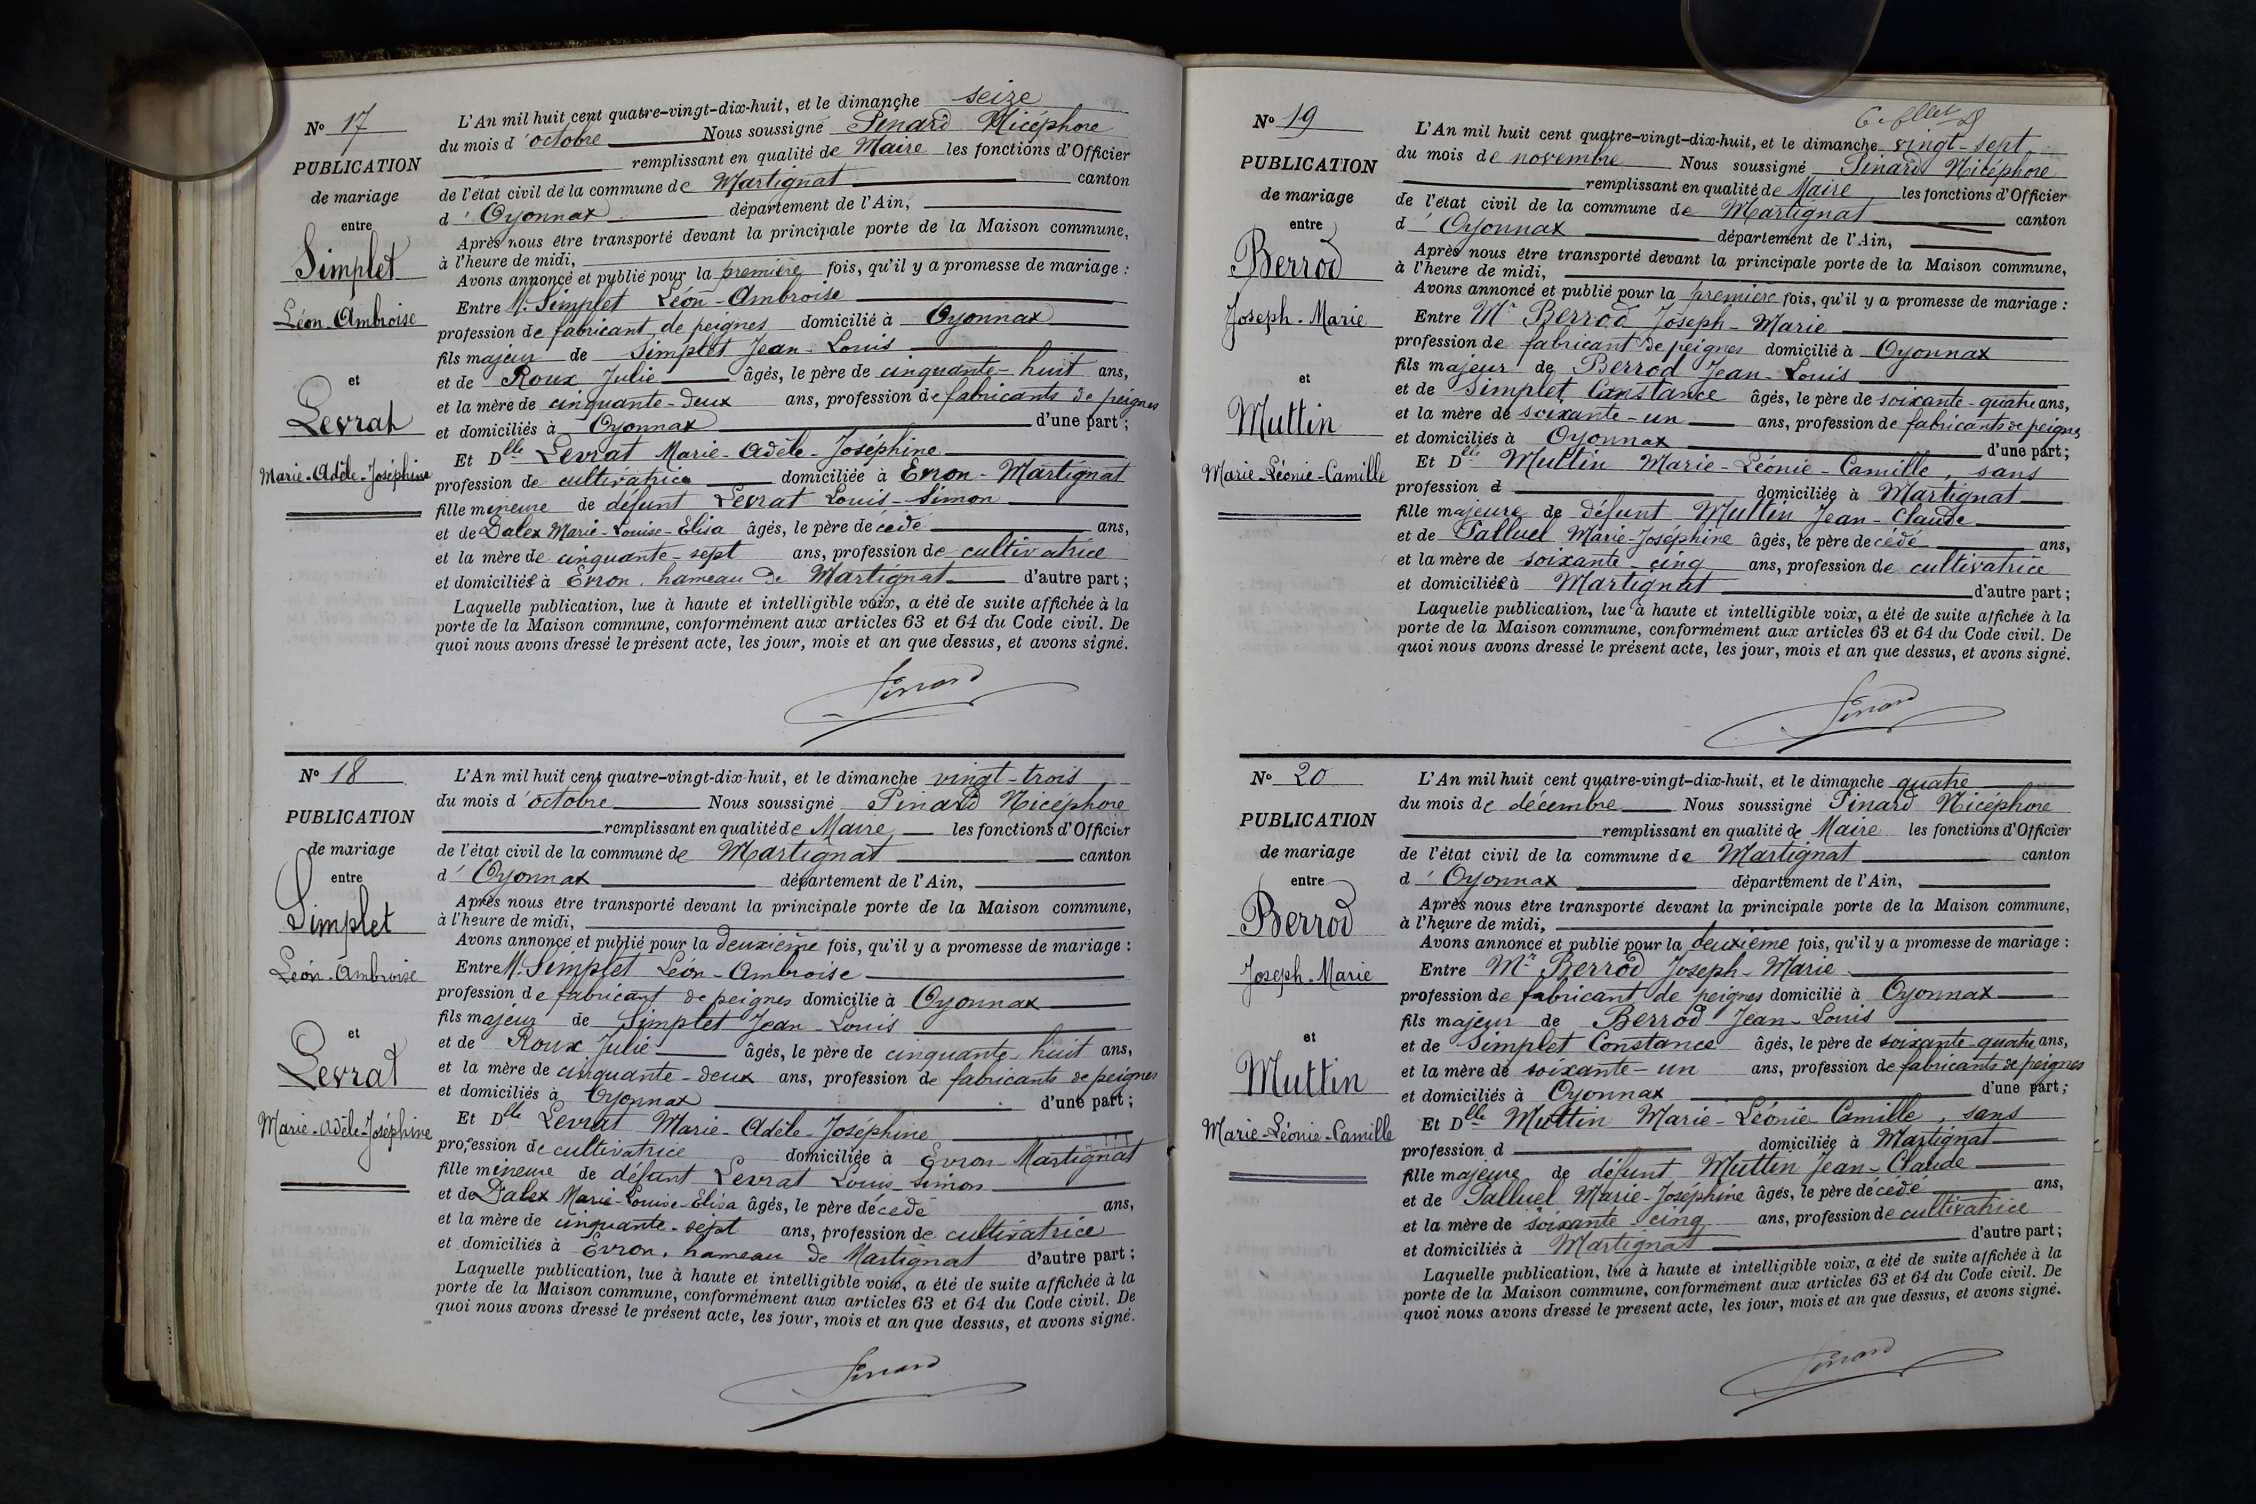 N° 17
PUBLICATION
de mariage
entre
Simplet
Léon-Ambroise
et
Levrat
Marie-Adèle-Joséphine
L'An mil huit cent quatre-vingt-dix-huit, et le dimanche seize
du mois d'octobre Nous soussigné Pinard Nicéphore
remplissant en qualité de Maire les fonctions d'Officier
de l'état civil de la commune de Martignat canton
d'Oyonnax département de l'Ain,
Après nous être transporté devant la principale porte de la Maison commune,
à l'heure de midi,
Avons annoncé et publié pour la première fois, qu'il y a promesse de mariage :
Entre M. Simplet Léon-Ambroise
profession de fabricant de peignes domicilié à Oyonnax
fils majeur de Simplet Jean-Louis
et de Roux Julie âgés, le père de cinquante-huit ans,
et la mère de cinquante-deux ans, profession de fabricants de peignes
et domiciliés à Oyonnax d'une part ;
Et Dlle Levrat Marie-Adèle-Joséphine
profession de cultivatrice domiciliée à Evron-Martignat
fille mineure de défunt Levrat Louis-Simon
et de Dalex Marie-Louise-Elisa âgés, le père décédé ans,
et la mère de cinquante-sept ans, profession de cultivatrice
et domiciliée à Evron, hameau de Martignat d'autre part ;
Laquelle publication, lue à haute et intelligible voix, a été de suite affichée à la
porte de la Maison commune, conformément aux articles 63 et 64 du Code civil. De
quoi nous avons dressé le présent acte, les jour, mois et an que dessus, et avons signé.
Pinard
N° 18
PUBLICATION
de mariage
entre
Simplet
Léon-Ambroise
et
Levrat
Marie-Adèle-Joséphine
L'An mil huit cent quatre-vingt-dix-huit, et le dimanche vingt-trois
du mois d'octobre Nous soussigné Pinard Nicéphore
remplissant en qualité de Maire les fonctions d'Officier
de l'état civil de la commune de Martignat canton
d'Oyonnax département de l'Ain,
Après nous être transporté devant la principale porte de la Maison commune,
à l'heure de midi,
Avons annoncé et publié pour la deuxième fois, qu'il y a promesse de mariage :
Entre M. Simplet Léon-Ambroise
profession de fabricant de peignes domicilié à Oyonnax
fils majeur de Simplet Jean-Louis
et de Roux Julie âgés, le père de cinquante-huit ans,
et la mère de cinquante-deux ans, profession de fabricants de peignes
et domiciliés à Oyonnax d'une part ;
Et Dlle Levrat Marie-Adèle-Joséphine
profession de cultivatrice domiciliée à Evron-Martignat
fille mineure de défunt Levrat Louis-Simon
et de Dalex Marie-Louise-Elisa âgés, le père décédé ans,
et la mère de cinquante-sept ans, profession de cultivatrice
et domiciliés à Evron, hameau de Martignat d'autre part ;
Laquelle publication, lue à haute et intelligible voix, a été de suite affichée à la
porte de la Maison commune, conformément aux articles 63 et 64 du Code civil. De
quoi nous avons dressé le présent acte, les jour, mois et an que dessus, et avons signé.
Pinard
N° 19
PUBLICATION
de mariage
entre
Berrod
Joseph-Marie
et
Muttin
Marie-Léonie-Camille
L'An mil huit cent quatre-vingt-dix-huit, et le dimanche vingt-sept
du mois de novembre Nous soussigné Pinard Nicéphore
remplissant en qualité de Maire les fonctions d'Officier
de l'état civil de la commune de Martignat canton
d'Oyonnax département de l'Ain,
Après nous être transporté devant la principale porte de la Maison commune,
à l'heure de midi,
Avons annoncé et publié pour la première fois, qu'il y a promesse de mariage :
Entre Mr Berrod Joseph-Marie
profession de fabricant de peignes domicilié à Oyonnax
fils majeur de Berrod Jean-Louis
et de Simplet Constance âgés, le père de soixante-quatre ans,
et la mère de soixante-un ans, profession de fabricants de peignes
et domiciliés à Oyonnax d'une part ;
Et Dlle Muttin Marie-Léonie-Camille, sans
profession d domiciliée à Martignat
fille majeure de défunt Muttin Jean-Claude
et de Palluel Marie-Joséphine âgés, le père décédé ans,
et la mère de soixante-cinq ans, profession de cultivatrice
et domiciliée à Martignat d'autre part ;
Laquelle publication, lue à haute et intelligible voix, a été de suite affichée à la
porte de la Maison commune, conformément aux articles 63 et 64 du Code civil. De
quoi nous avons dressé le présent acte, les jour, mois et an que dessus, et avons signé.
Pinard
N° 20
PUBLICATION
de mariage
entre
Berrod
Joseph-Marie
et
Muttin
Marie-Léonie-Camille
L'An mil huit cent quatre-vingt-dix-huit, et le dimanche quatre
du mois de décembre Nous soussigné Pinard Nicéphore
remplissant en qualité de Maire les fonctions d'Officier
de l'état civil de la commune de Martignat canton
d'Oyonnax département de l'Ain,
Après nous être transporté devant la principale porte de la Maison commune,
à l'heure de midi,
Avons annoncé et publié pour la deuxième fois, qu'il y a promesse de mariage :
Entre Mr Berrod Joseph-Marie
profession de fabricant de peignes domicilié à Oyonnax
fils majeur de Berrod Jean-Louis
et de Simplet Constance âgés, le père de soixante-quatre ans,
et la mère de soixante-un ans, profession de fabricants de peignes
et domiciliés à Oyonnax d'une part ;
Et Dlle Muttin Marie-Léonie-Camille, sans
profession d domiciliée à Martignat
fille majeure de défunt Muttin Jean-Claude
et de Palluel Marie-Joséphine âgés, le père décédé ans,
et la mère de soixante-cinq ans, profession de cultivatrice
et domiciliés à Martignat d'autre part ;
Laquelle publication, lue à haute et intelligible voix, a été de suite affichée à la
porte de la Maison commune, conformément aux articles 63 et 64 du Code civil. De
quoi nous avons dressé le présent acte, les jour, mois et an que dessus, et avons signé.
Pinard